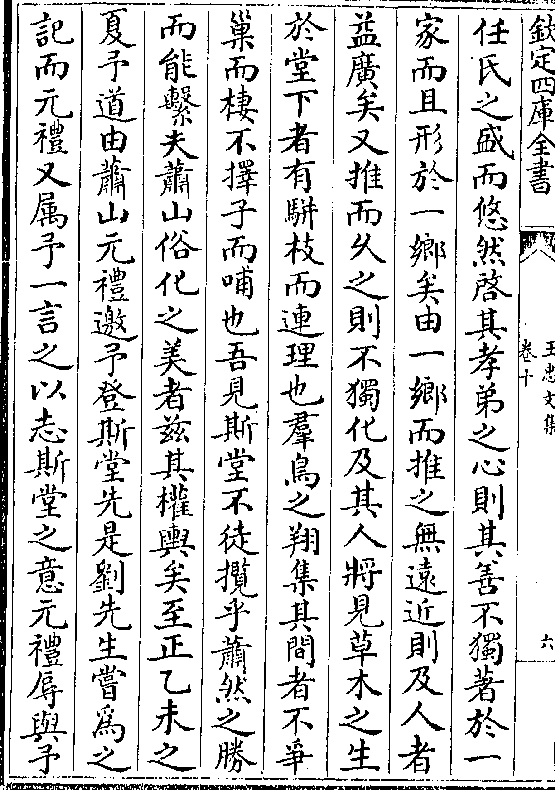 欽定四庫全書
王忠文集
卷十
六
任氏之盛而悠然啓其孝弟之心則其善不獨著於一
家而且形於一鄉矣由一鄉而推之無遠近則及人者
益廣矣又推而久之則不獨化及其人將見草木之生
於堂下者有駢枝而連理也羣鳥之翔集其間者不爭
巢而棲不擇子而哺也吾見斯堂不徒攬乎蕭然之勝
而能繫夫蕭山俗化之美者兹其權輿矣至正乙未之
夏予道由蕭山元禮邀予登斯堂先是劉先生嘗爲之
記而元禮又属予一言之以志斯堂之意元禮辱與予